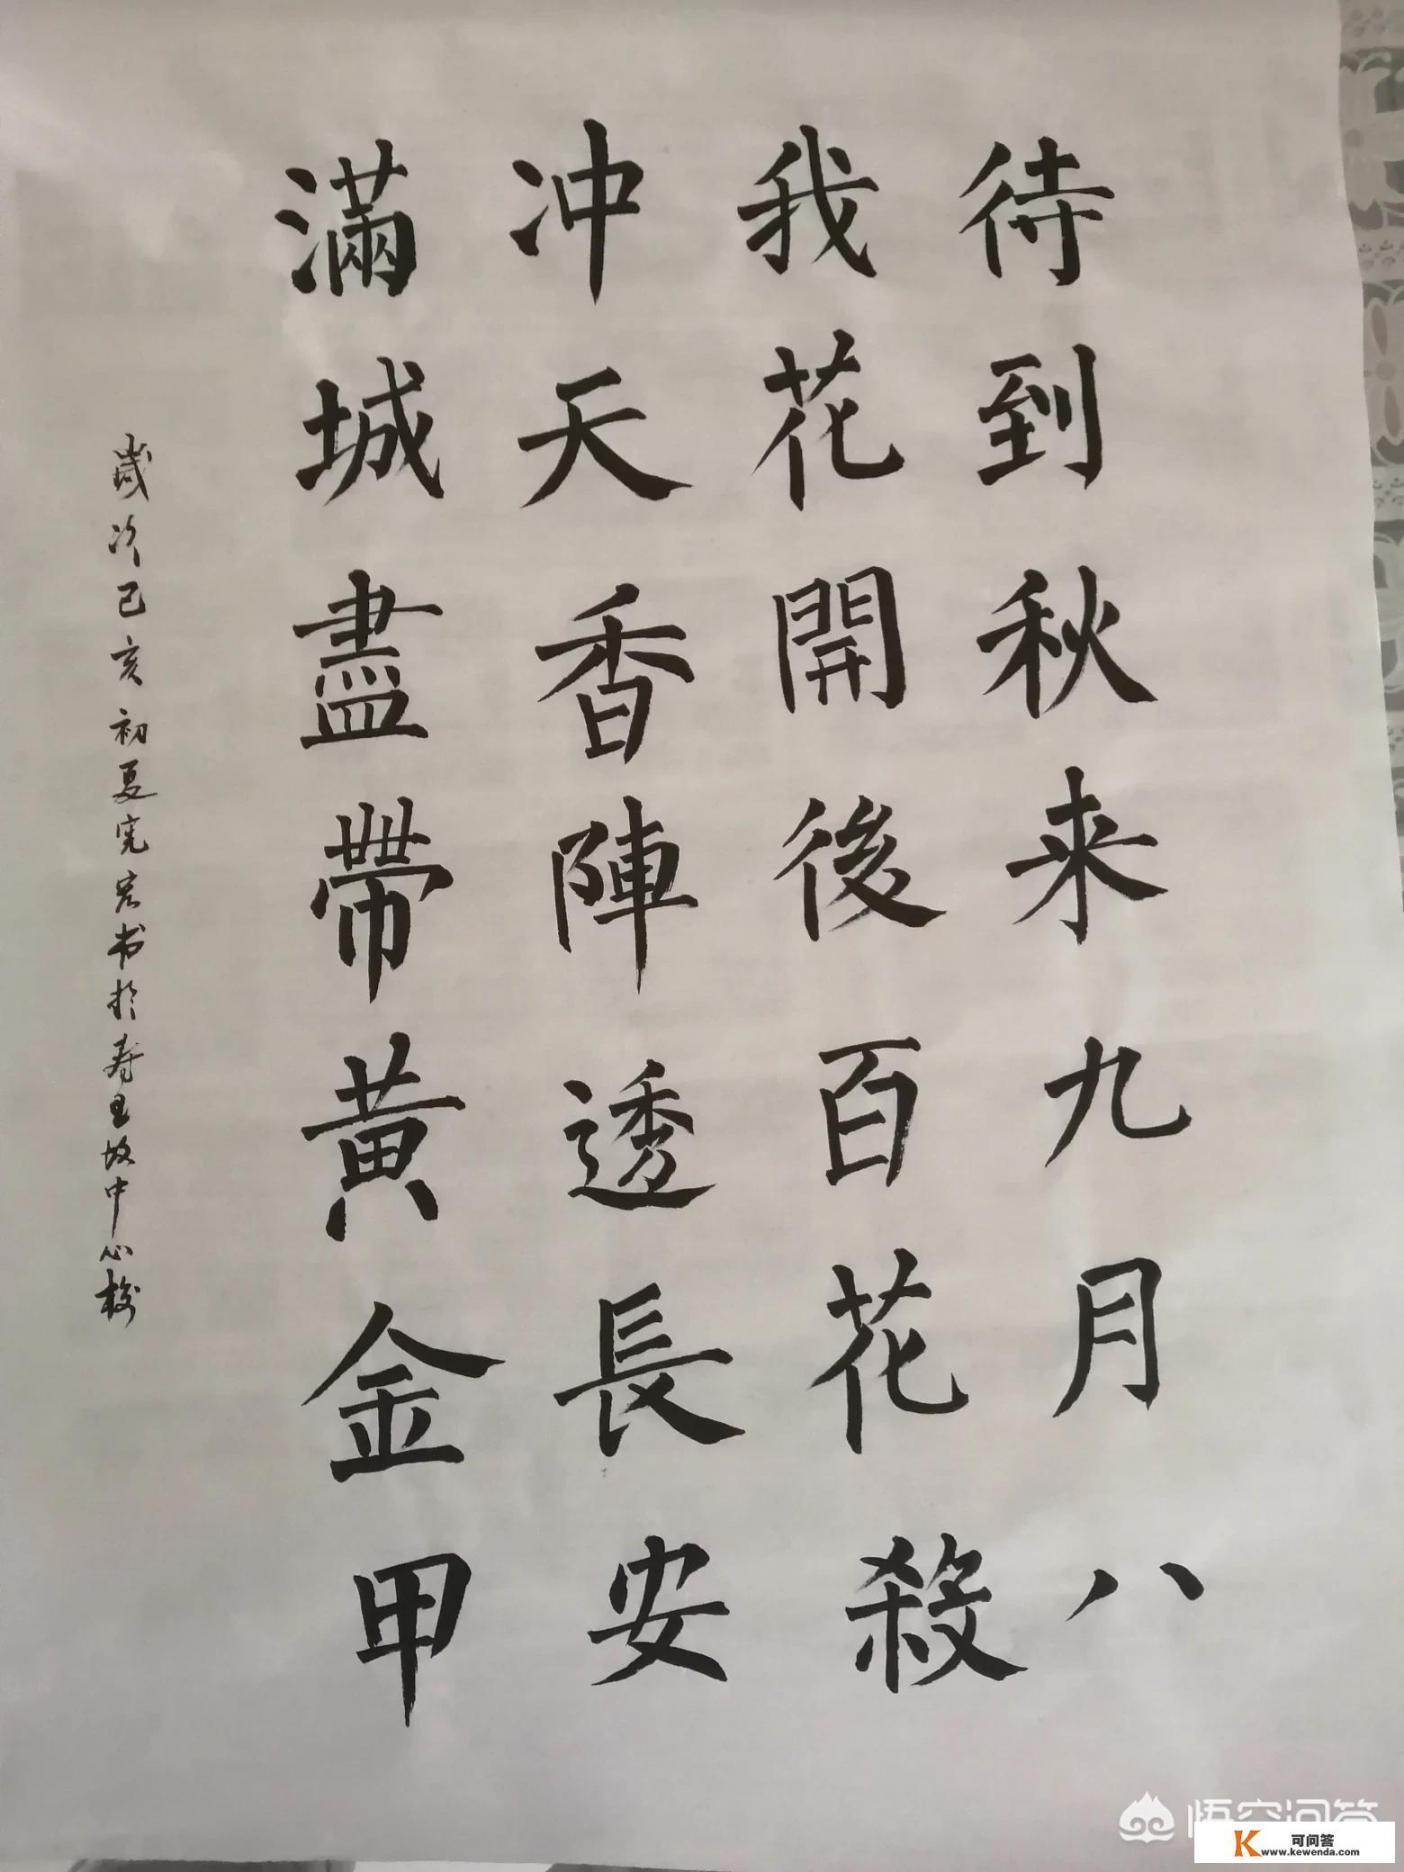 待到秋来九月八
我花開後百花殺
冲天香陣透長安
滿城盡帶黃金甲
歲次己亥初夏宪宏书於寿里坟中心校
悟空问答
K 可问答
www.kewenda.com